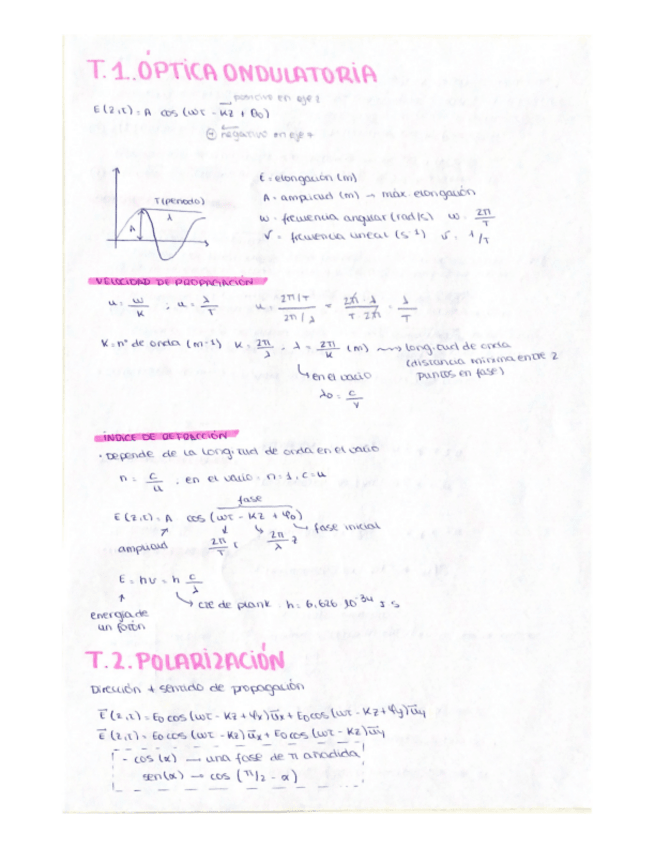 T.1. ÓPTICA ONDULATORIA
positivo en eje z
E(z,t) = A cos (ωt - Kz + θ0)
⊕ negativo en eje +
T(periodo)
λ
A
E = elongación (m)
A = amplitud (m) → máx elongación
w = frecuencia angular (rad/s) w = 2π/T
ν = frecuencia lineal (s-1) ν = 1/T
VELOCIDAD DE PROPAGACIÓN
u = w/K ; u = λ/T u = (2π/T)/(2π/λ) = (2π · λ)/(T 2π) = λ/T
K = nº de onda (m-1) K = 2π/λ . λ = 2π/K (m) ⟿ longitud de onda
(distancia mínima entre 2
puntos en fase)
↳ en el vacío
λ0 = c/ν
ÍNDICE DE REFRACCIÓN
· Depende de la longitud de onda en el vacío
n = c/u , en el vacío = n = 1, c = u
fase
E(z,t) = A cos (ωt - Kz + φ0)
↳ fase inicial
amplitud 2π/T t 2π/λ z
E = hν = h c/λ
↳ cte de plank h = 6,626 10^-34 J s
energía de
un fotón
T.2. POLARIZACIÓN
Dirección + sentido de propagación
E⃗(z,t) = E0 cos (ωt - Kz + φx) u⃗x + E0 cos (ωt - Kz + φy) u⃗y
E⃗(z,t) = E0 cos (ωt - Kz) u⃗x + E0 cos (ωt - Kz) u⃗y
- cos (α) → una fase de π añadida
sen(α) → cos (π/2 - α)